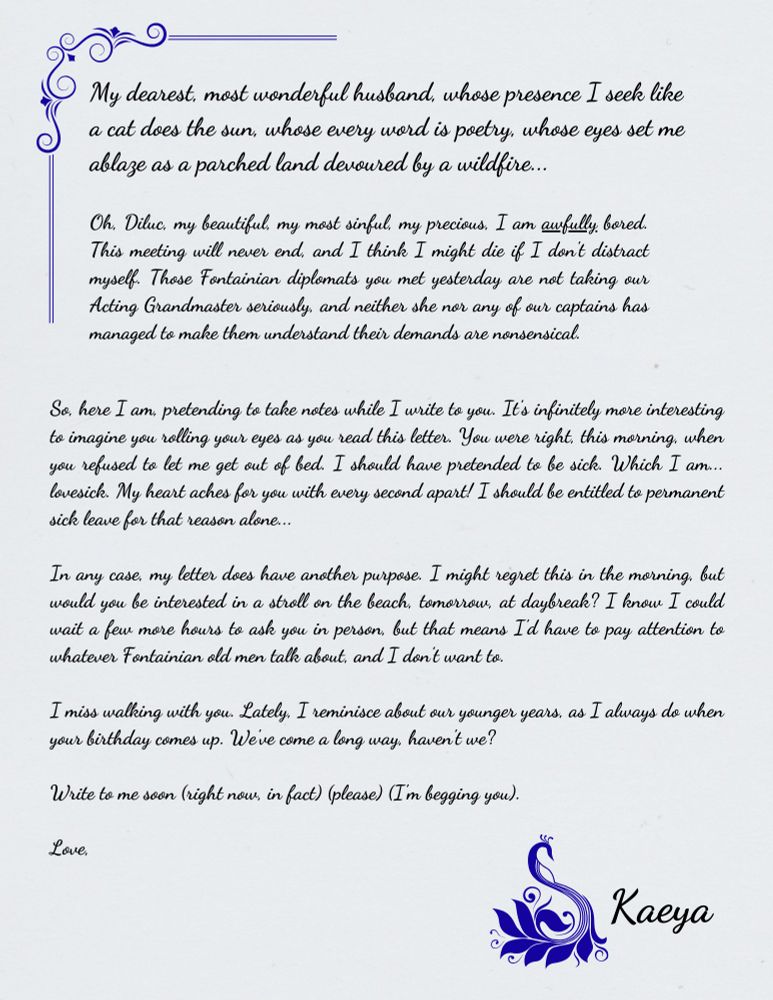 My dearest, most wonderful husband, whose presence I seek like
a cat does the sun, whose every word is poetry, whose eyes set me
ablaze as a parched land devoured by a wildfire...
Oh, Diluc, my beautiful, my most sinful, my precious, I am awfully bored.
This meeting will never end, and I think I might die if I don't distract
myself. Those Fontainian diplomats you met yesterday are not taking our
Acting Grandmaster seriously, and neither she nor any of our captains has
managed to make them understand their demands are nonsensical.
So, here I am, pretending to take notes while I write to you. It's infinitely more interesting
to imagine you rolling your eyes as you read this letter. You were right, this morning, when
you refused to let me get out of bed. I should have pretended to be sick. Which I am...
lovesick. My heart aches for you with every second apart! I should be entitled to permanent
sick leave for that reason alone...
In any case, my letter does have another purpose. I might regret this in the morning, but
would you be interested in a stroll on the beach, tomorrow, at daybreak? I know I could
wait a few more hours to ask you in person, but that means I'd have to pay attention to
whatever Fontainian old men talk about, and I don't want to.
I miss walking with you. Lately, I reminisce about our younger years, as I always do when
your birthday comes up. We've come a long way, haven't we?
Write to me soon (right now, in fact) (please) (I'm begging you).
Love,
Kaeya